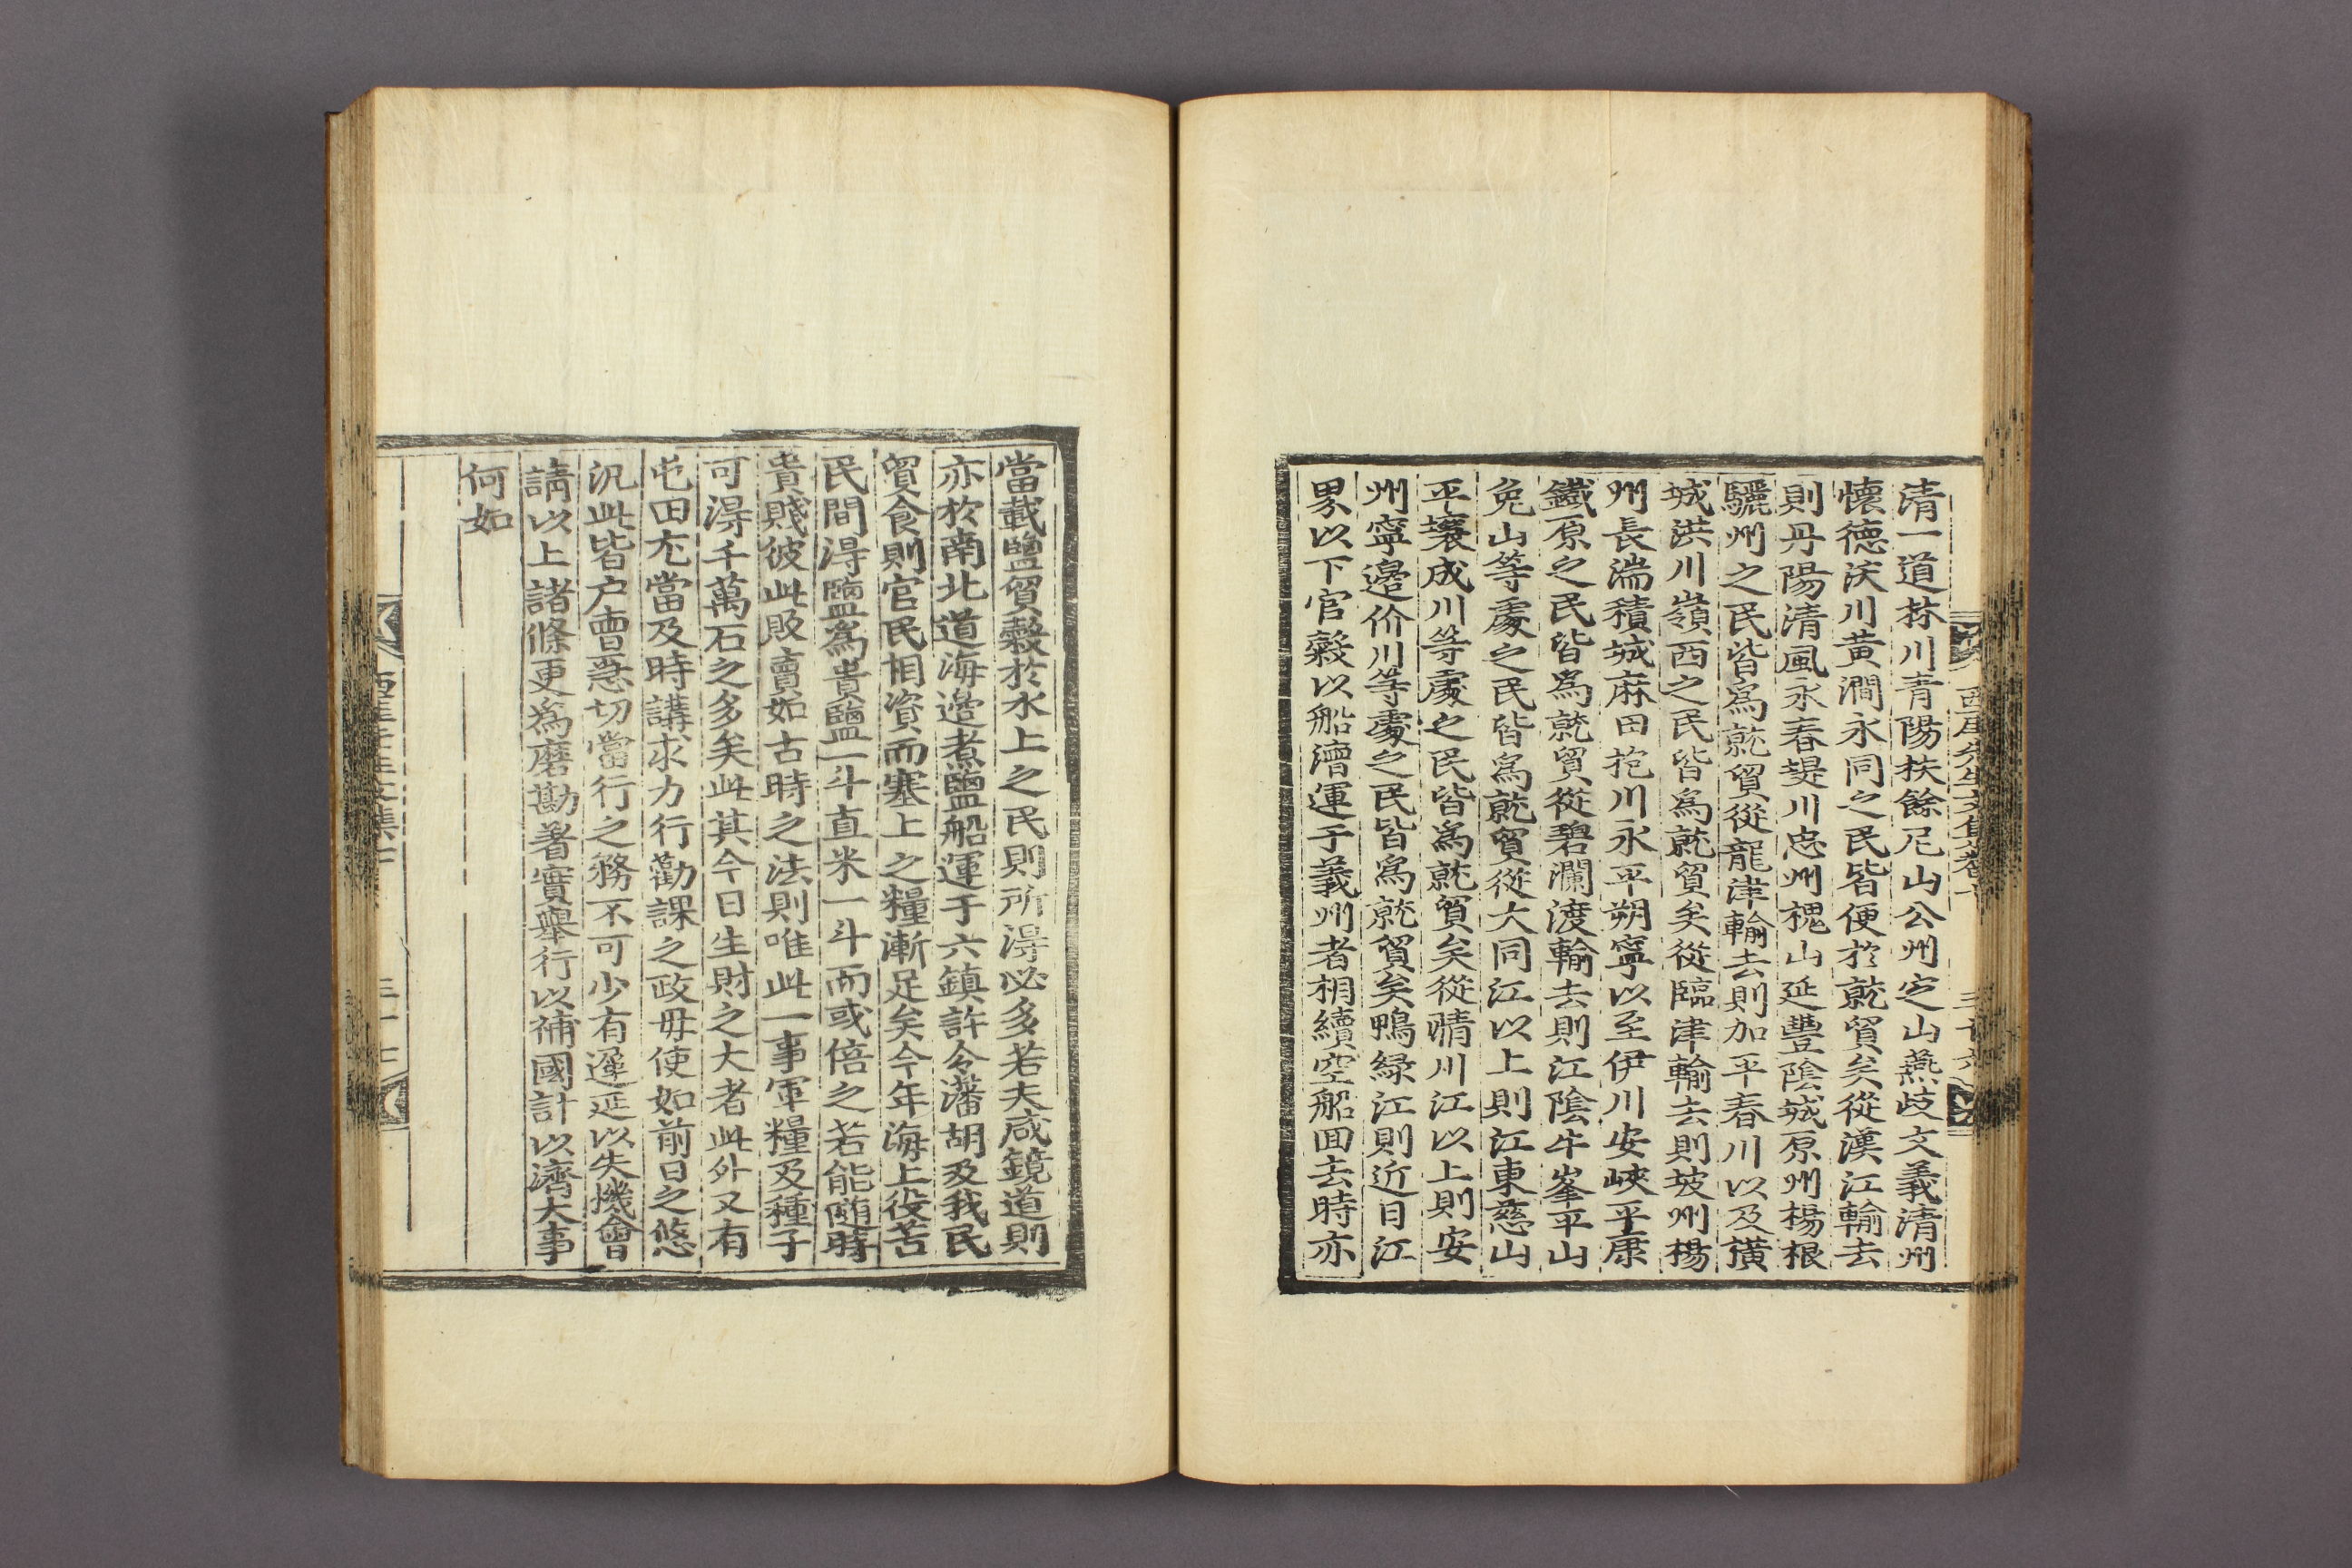 清一道林川青陽扶餘尼山公州定山燕歧文義清州
懷德沃川黃澗永同之民皆便於就貿矣從漢江輸去
則丹陽清風永春堤川忠州槐山延豐陰城原州楊根
驪州之民皆爲就貿從龍津輸去則加平春川以及橫
城洪川嶺西之民皆爲就貿矣從臨津輸去則坡州楊
州長湍積城麻田抱川永平朔寧以至伊川安峽平康
鐵原之民皆爲就貿從碧瀾渡輸去則江陰牛峯平山
兔山等處之民皆爲就貿從大同江以上則江東慈山
平壤成川等處之民皆爲就貿矣從晴川江以上則安
州寧邊价川等處之民皆爲就貿矣鴨綠江則近日江
界以下官糓以船漕運于義州者相續空船回去時亦
西厓先生文集卷十
當載鹽貿糓於水上之民則所得必多若夫咸鏡道則
亦於南北道海邊煮鹽船運于六鎮許令藩胡及我民
貿食則官民相資而塞上之糧漸足矣今年海上役苦
民間得鹽爲貴鹽一斗直米一斗而或倍之若能隨時
貴賤彼此販賣如古時之法則唯此一事軍糧及種子
可得千萬石之多矣此其今日生財之大者此外又有
屯田尤當及時講求力行勸課之政毋使如前日之悠
況此皆戶曹悉切當行之務不可少有遲延以失機會
請以上諸條更爲磨勘著實舉行以補國計以濟大事
何如